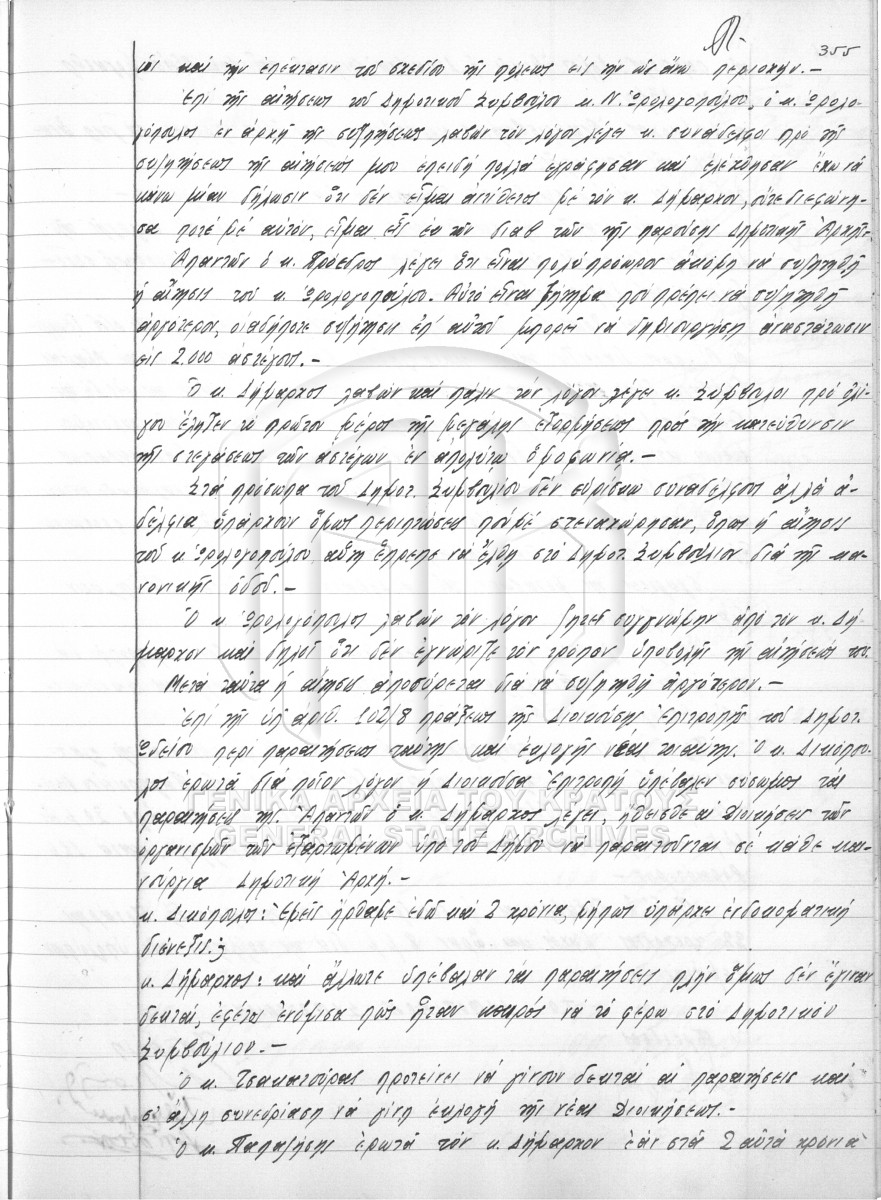 355
ὡς καὶ τὴν ἐπέκτασιν τοῦ σχεδίου τῆς πόλεως εἰς τὴν ὡς ἄνω περιοχήν.—
Ἐπὶ τῆς αἰτήσεως τοῦ Δημοτικοῦ Συμβούλου κ. Ν. Ὡρολογοπούλου, ὁ κ. Ὡρολο-
γόπουλος ἐν ἀρχῇ τῆς συζητήσεως λαβὼν τὸν λόγον λέγει κ. συνάδελφοι πρὸ τῆς
συζητήσεως τῆς αἰτήσεώς μου ἐπειδὴ πολλὰ ἐγράφησαν καὶ ἐλέχθησαν ἔχω νὰ
κάνω μίαν δήλωσιν ὅτι δὲν εἶμαι ἀντίθετος μὲ τὸν κ. Δήμαρχον, οὔτε διεφώνη-
σα ποτὲ μὲ αὐτόν, εἶμαι εἷς ἐκ τῶν τῆς παρούσης Δημοτικῆς Ἀρχῆς.-
Ἀπαντῶν ὁ κ. Πρόεδρος λέγει ὅτι εἶναι πολὺ πρόωρος ἀκόμη νὰ συζητηθῇ
ἡ αἴτησις τοῦ κ. Ὡρολογοπούλου. Αὐτὸ εἶναι ζήτημα ποὺ πρέπει νὰ συζητηθῇ
ἀργότερον, οἱαδήποτε συζήτησις ἐπ' αὐτοῦ μπορεῖ νὰ δημιουργήσῃ ἀναστάτωσιν
εἰς 2.000 ἀστέγους.—
Ὁ κ. Δήμαρχος λαβὼν καὶ πάλιν τὸν λόγον λέγει κ. Σύμβουλοι πρὸ ὀλί-
γου ἔληξεν τὸ πρῶτον μέρος τῆς μεγάλης ἐξορμήσεως πρὸς τὴν κατεύθυνσιν
τῆς στεγάσεως τῶν ἀστέγων ἐν ἀπολύτῳ ὁμοφωνίᾳ.—
Στὰ πρόσωπα τοῦ Δημοτ. Συμβουλίου δὲν εὑρίσκω συναδέλφους ἀλλὰ ἀ-
δέλφια ὑπάρχουν ὅμως περιπτώσεις ποὺ μὲ στεναχώρησαν, ὅπως ἡ αἴτησις
τοῦ κ. Ὡρολογοπούλου αὕτη ἔπρεπε νὰ ἔλθῃ στὸ Δημοτ. Συμβούλιον διὰ τῆς κα-
νονικῆς ὁδοῦ.—
Ὁ κ. Ὡρολογόπουλος λαβὼν τὸν λόγον ζητεῖ συγγνώμην ἀπὸ τὸν κ. Δή-
μαρχον καὶ δηλοῖ ὅτι δὲν ἐγνώριζε τὸν τρόπον ὑποβολῆς τῆς αἰτήσεώς του.
Μετὰ ταῦτα ἡ αἴτησις ἀποσύρεται διὰ νὰ συζητηθῇ ἀργότερον.—
Ἐπὶ τῆς ὑπ' ἀριθ. 102/8 πράξεως τῆς Διοικούσης Ἐπιτροπῆς τοῦ Δημοτ.
Ὠδείου περὶ παραιτήσεως ταύτης καὶ ἐκλογῆς νέας τοιαύτης. Ὁ κ. Δικόπου-
λος ἐρωτᾶ διὰ ποῖον λόγον ἡ Διοικοῦσα Ἐπιτροπὴ ὑπέβαλεν σύσσωμος τὰς
παραιτήσεις της. Ἀπαντῶν ὁ κ. Δήμαρχος λέγει, ἠθεῖσθε αἱ Διοικήσεις τῶν
ὀργανισμῶν τῶν ἐξαρτωμένων ὑπὸ τοῦ Δήμου νὰ παραιτοῦνται σὲ κάθε και-
νούργια Δημοτικὴ Ἀρχή.—
κ. Δικόπουλος: Ἐμεῖς ἤρθαμε ἐδῶ καὶ 2 χρόνια, μήπως ὑπάρχει ἐνδοκοματικὴ
διένεξις;
κ. Δήμαρχος: καὶ ἄλλωτε ὑπέβαλαν τὰς παραιτήσεις πλὴν ὅμως δὲν ἔγιναν
δεκταί, ἐφέτος ἐνόμισα πὼς ἦταν καιρὸς νὰ τὸ φέρω στὸ Δημοτικὸν
Συμβούλιον.—
Ὁ κ. Τσακατούρας προτείνει νὰ γίνουν δεκταὶ αἱ παραιτήσεις καὶ
σὲ ἄλλη συνεδρίαση νὰ γίνῃ ἐκλογὴ τῆς νέας Διοικήσεως.—
Ὁ κ. Παπαζήσης ἐρωτᾶ τὸν κ. Δήμαρχον ἐὰν στὰ 2 αὐτὰ χρόνια
ΓΕΝΙΚΑ ΑΡΧΕΙΑ ΤΟΥ ΚΡΑΤΟΥΣ
GENERAL STATE ARCHIVES